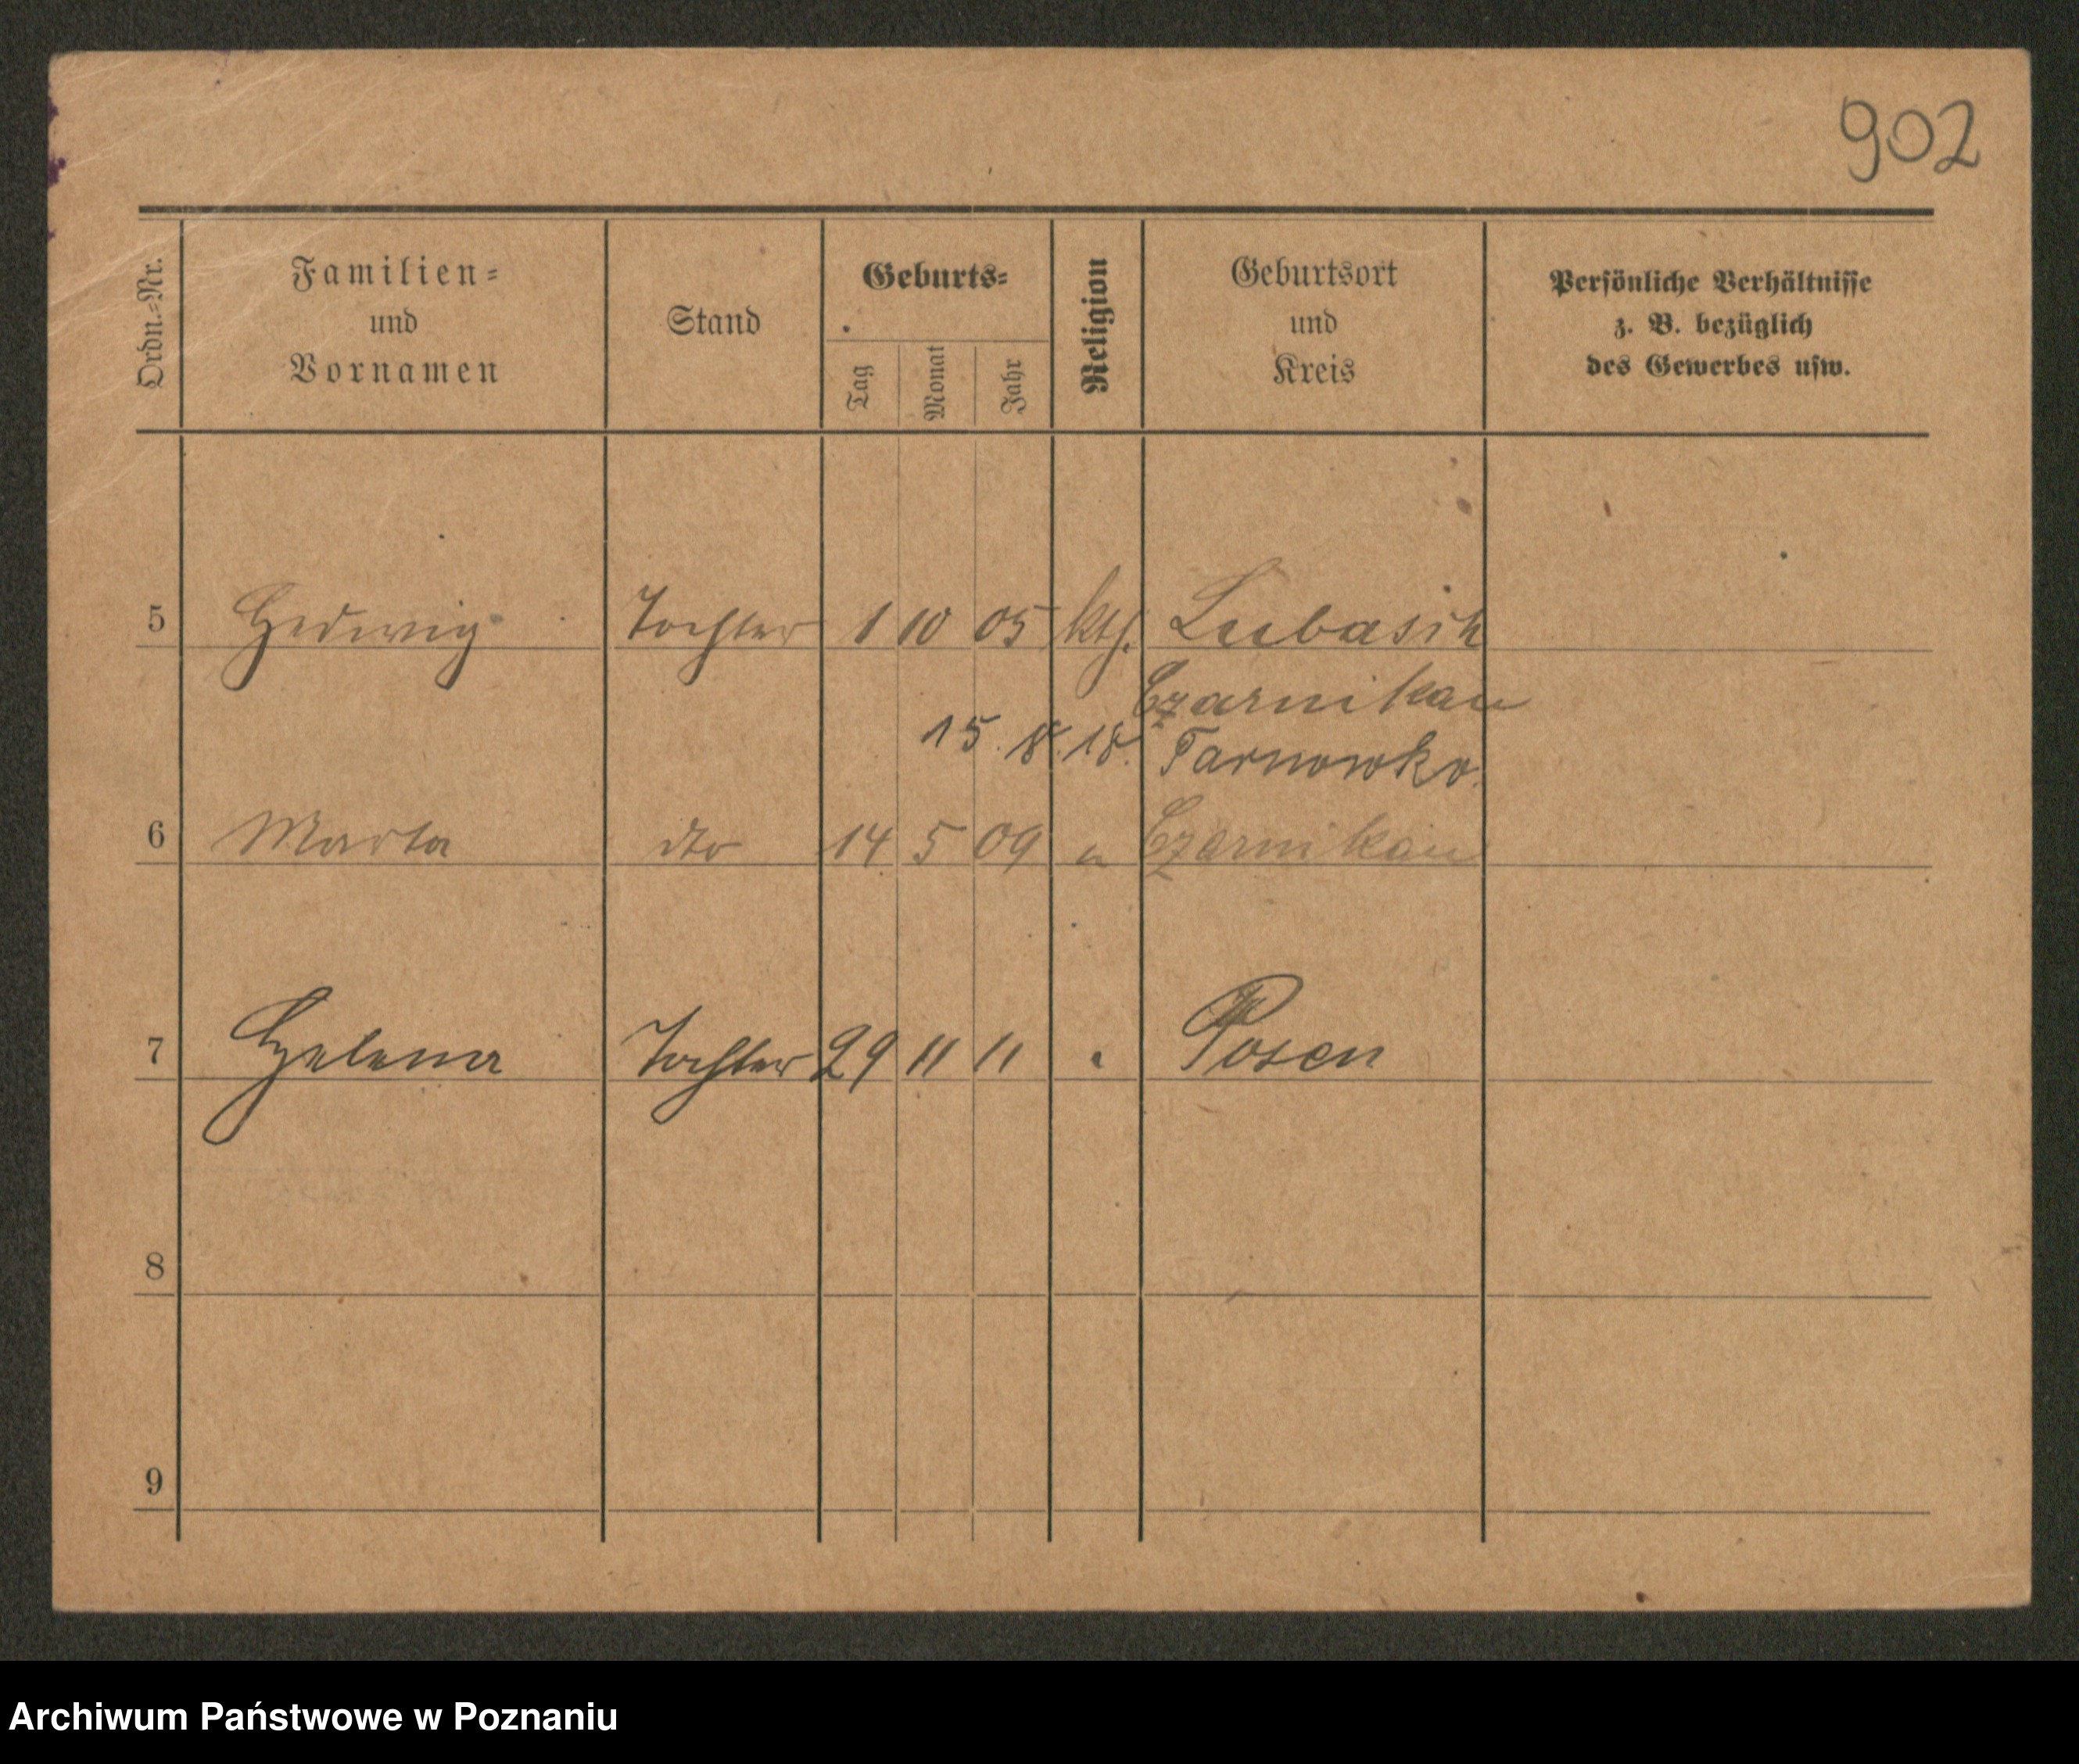 902
Ordn.-Nr.
Familien-
und
Vornamen
Stand
Geburts-
Tag
Monat
Jahr
Religion
Geburtsort
und
Kreis
Persönliche Verhältnisse
z. B. bezüglich
des Gewerbes usw.
5 Hedwig Tochter 1 10 05 kth. Lubasch
Czarnikau
15. 8. 18. Tarnowko.
6 Marta dto 14 5 09 " Czarnikau
7 Helena Tochter 29 11 11 " Posen
8
9
Archiwum Państwowe w Poznaniu